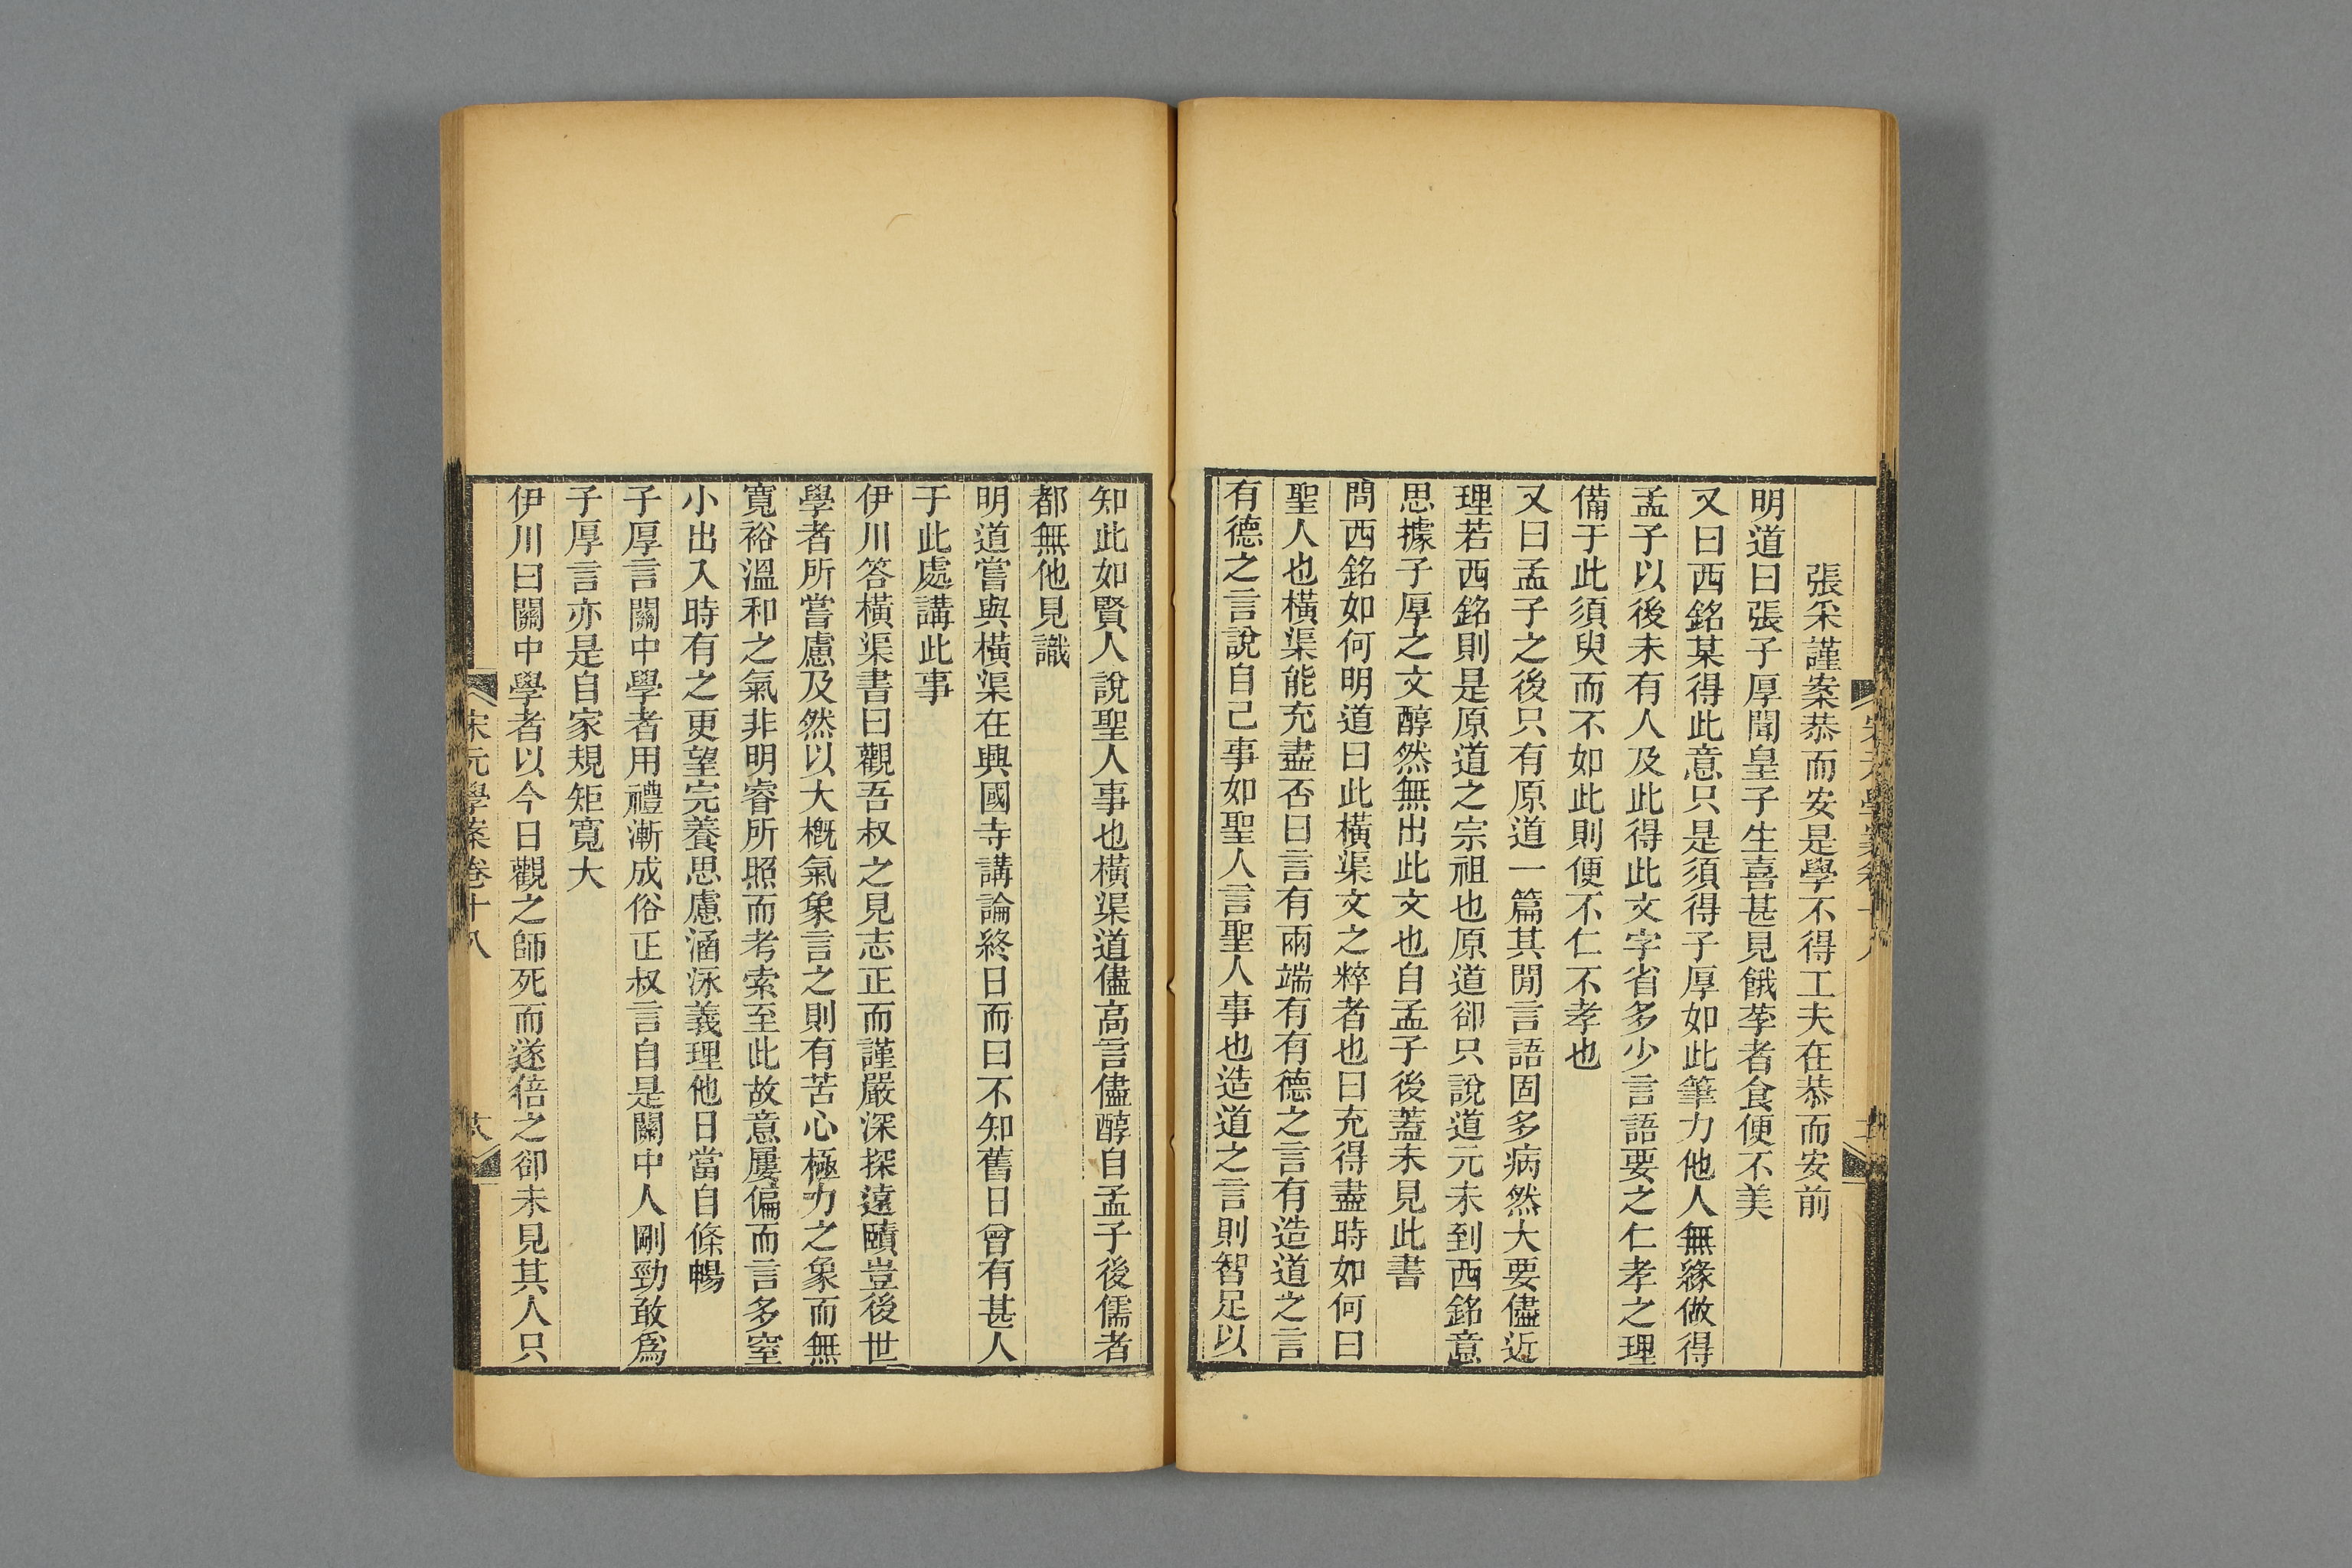 張采謹案恭而安是學不得工夫在恭而安前
明道曰張子厚聞皇子生喜甚見餓莩者食便不美
又曰西銘某得此意只是須得子厚如此筆力他人無緣做得
孟子以後未有人及此得此文字省多少言語要之仁孝之理
備于此須臾而不如此則便不仁不孝也
又曰孟子之後只有原道一篇其閒言語固多病然大要儘近
理若西銘則是原道之宗祖也原道卻只說道元未到西銘意
思據子厚之文醇然無出此文也自孟子後蓋未見此書
問西銘如何明道曰此橫渠文之粹者也曰充得盡時如何曰
聖人也橫渠能充盡否曰言有兩端有有德之言有造道之言
有德之言說自己事如聖人言聖人事也造道之言則智足以
知此如賢人說聖人事也橫渠道儘高言儘醇自孟子後儒者
都無他見識
明道嘗與橫渠在興國寺講論終日而曰不知舊日曾有甚人
于此處講此事
伊川答橫渠書曰觀吾叔之見志正而謹嚴深探遠賾豈後世
學者所嘗慮及然以大槪氣象言之則有苦心極力之象而無
寬裕溫和之氣非明睿所照而考索至此故意屢偏而言多窒
小出入時有之更望完養思慮涵泳義理他日當自條暢
子厚言關中學者用禮漸成俗正叔言自是關中人剛勁敢爲
子厚言亦是自家規矩寬大
伊川曰關中學者以今日觀之師死而遂倍之卻未見其人只
宋元學案卷十八